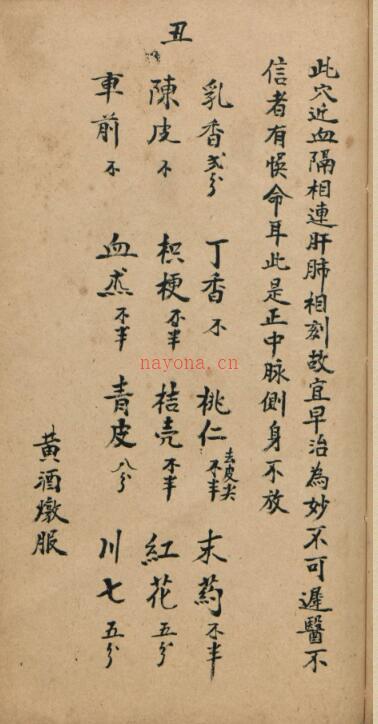 此穴近血隔相連肝肺相刻故宜早治為妙不可遲醫不
信者有悞命耳此是正中脉側身不放
丑
乳香 弍分 丁香 不 桃仁 去皮尖 不半 末药 不半
陳皮 不 枳梗 不半 桔壳 不半 紅花 五分
車前 不 血 不半 青皮 八分 川七 五分
黄酒燉服
nayona.cn